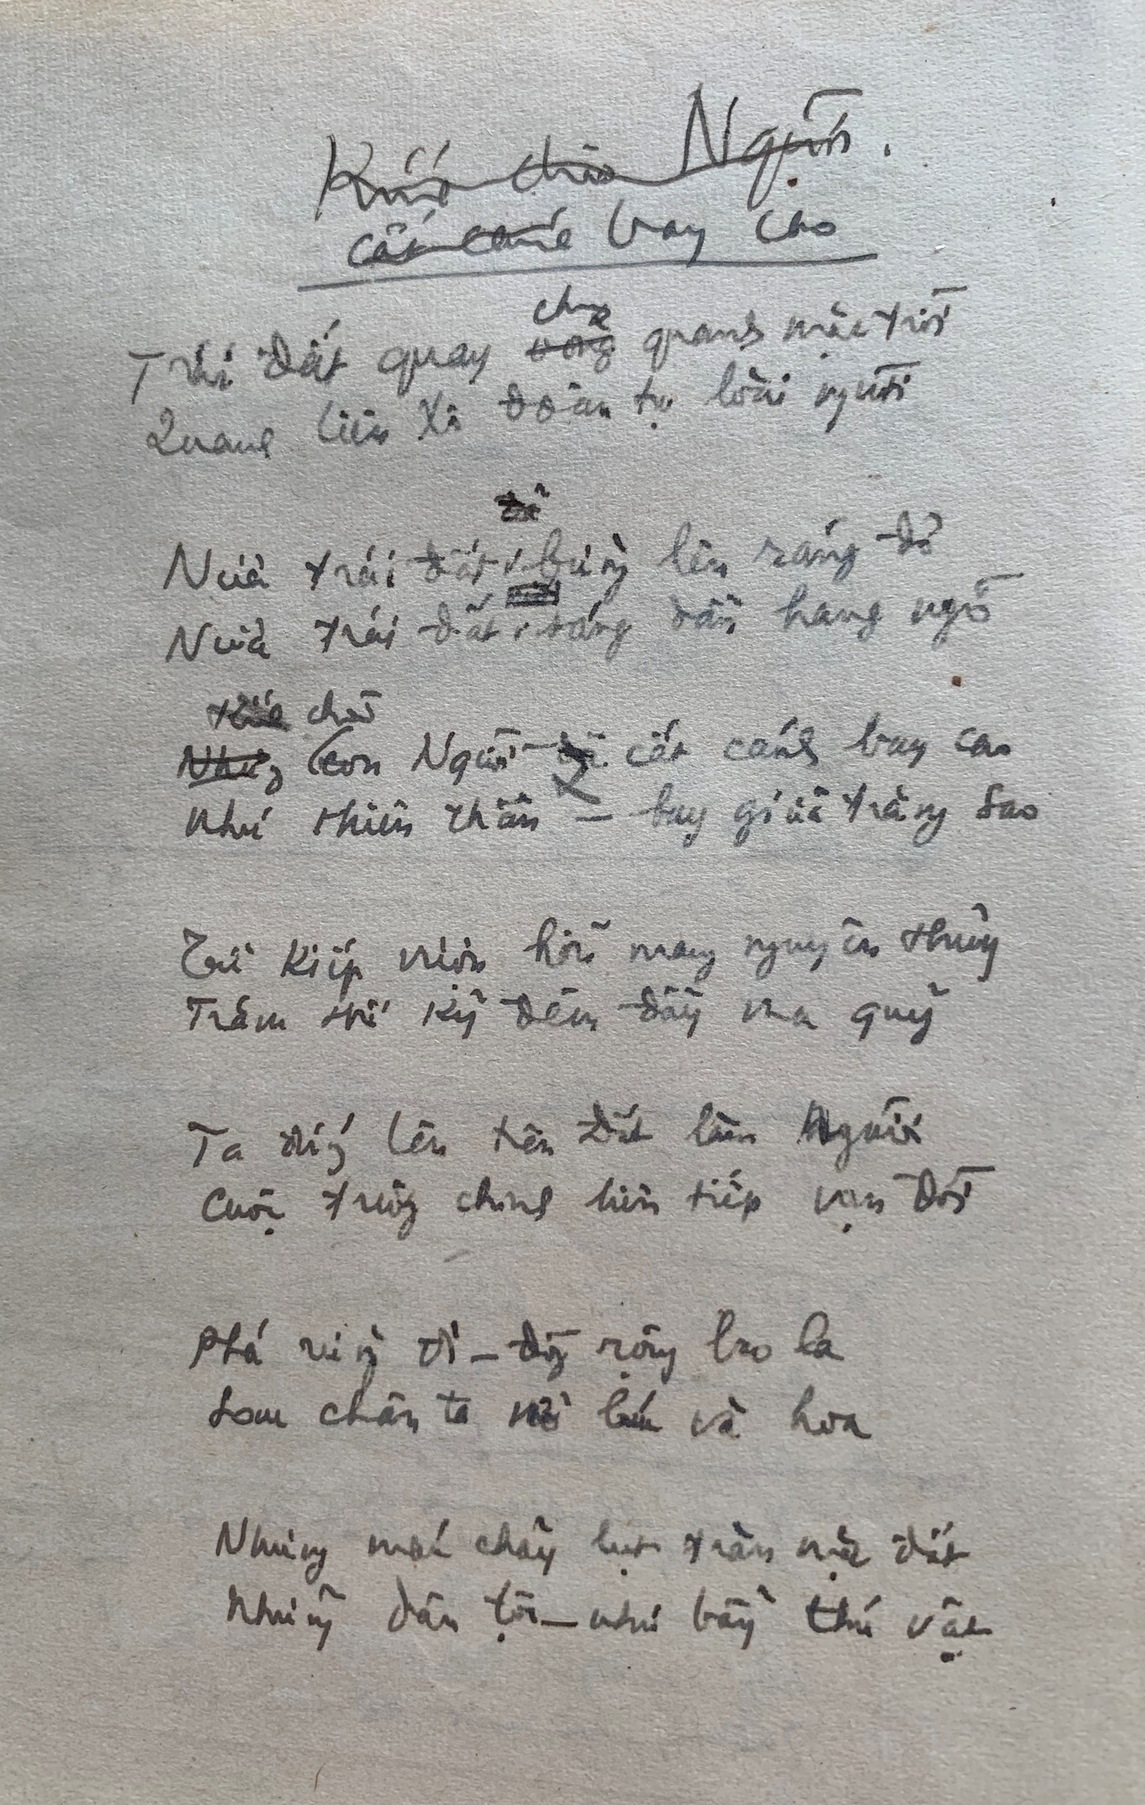 Kính chào Người.
cất cánh bay cao
chung
Trái đất quay vòng quanh mặt trời
Quanh Liên Xô đoàn tụ loài người
đã
Nửa trái đất, bừng lên ráng đỏ
Nửa trái đất, sáng dần hang ngõ
chào
Những Con Người đã cất cánh bay cao
Như thiên thần – bay giữa trăng sao
Từ kiếp vượn hồn mang nguyên thủy
Trăm thế kỷ đêm đầy ma quỷ
Ta đứng lên trên Đất làm Người
Cuộc trường chinh liên tiếp vạn đời
Phá rừng đi – đồng rộng bao la
Sau chân ta và hoa
Nhưng máu chảy lụt tràn mặt đất
Những dân tộc – như bầy thú vật